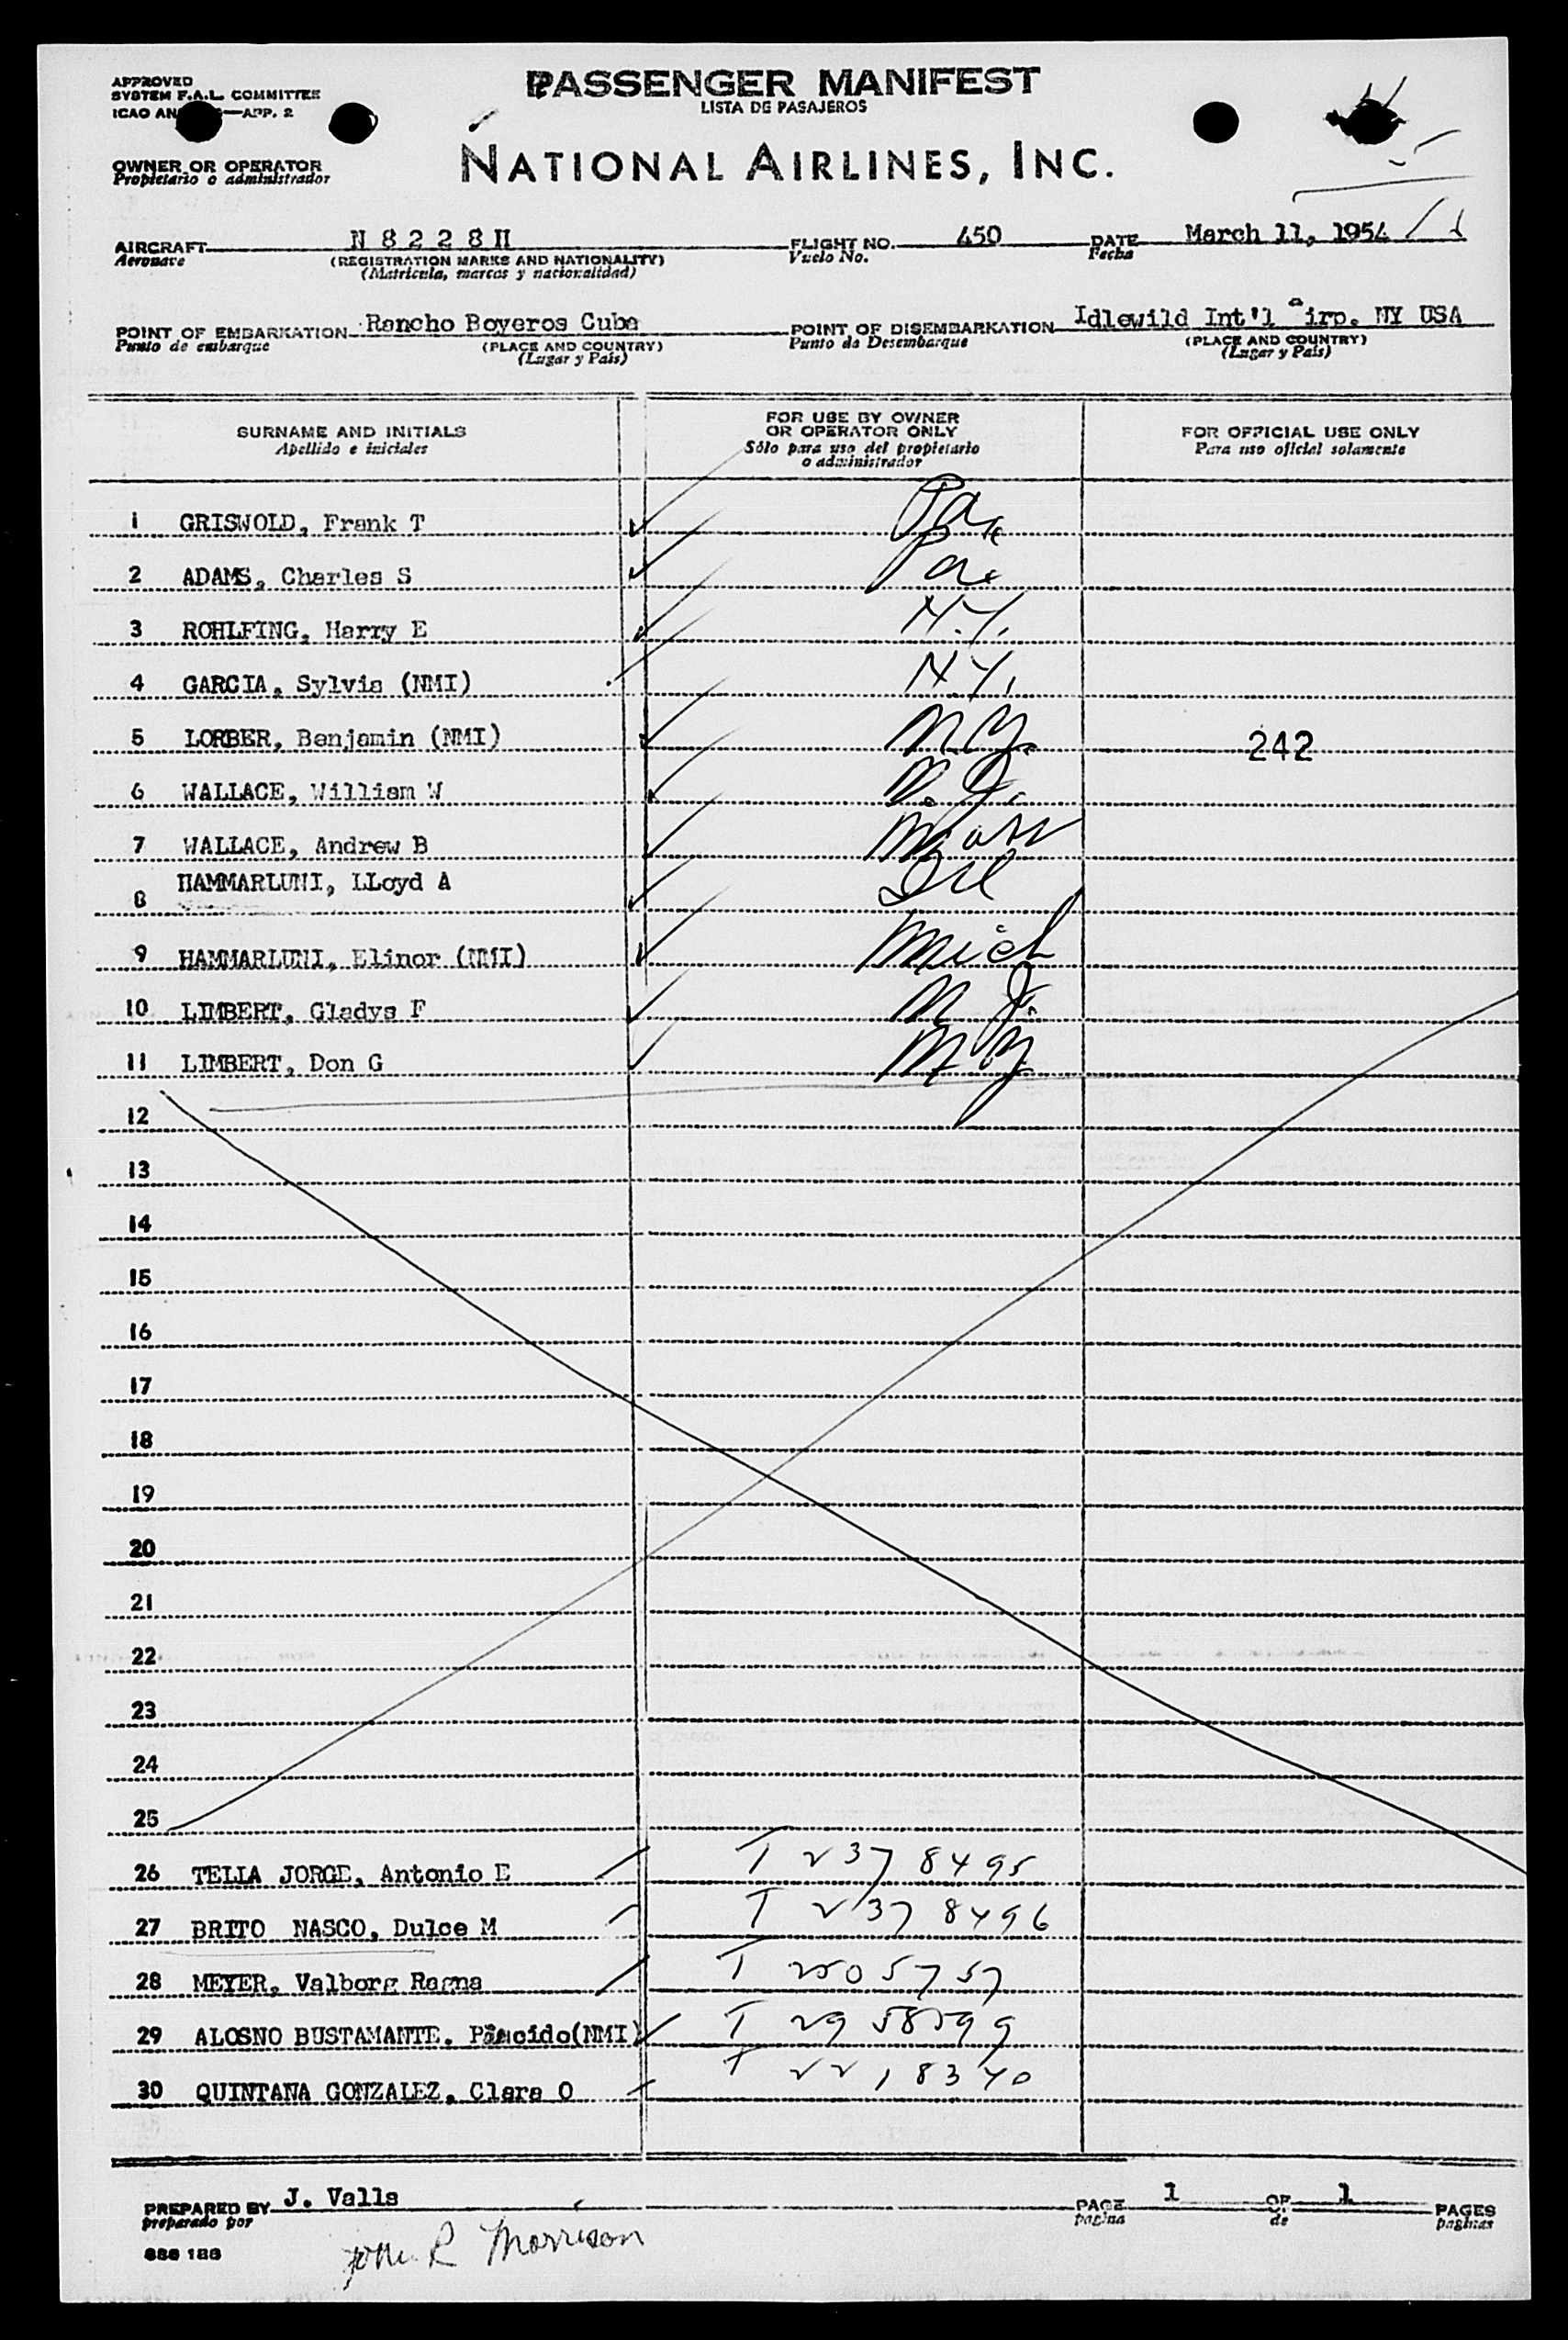 APPROVED
SYSTEM F.A.L. COMMITTEE
ICAO AN —APP. 2
PASSENGER MANIFEST
LISTA DE PASAJEROS
OWNER OR OPERATOR
Propietario o administrador
NATIONAL AIRLINES, INC.
AIRCRAFT N 8 2 2 8 H FLIGHT NO. 450 DATE March 11, 1954
Aeronave (REGISTRATION MARKS AND NATIONALITY) Vuelo No. Fecha
(Matricula, marcas y nacionalidad)
POINT OF EMBARKATION Rancho Boyeros Cuba POINT OF DISEMBARKATION Idlewild Int'l Airp. NY USA
Punto de embarque (PLACE AND COUNTRY) Punto de Desembarque (PLACE AND COUNTRY)
(Lugar y País) (Lugar y País)
SURNAME AND INITIALS FOR USE BY OWNER OR OPERATOR ONLY FOR OFFICIAL USE ONLY
Apellido e iniciales Sólo para uso del propietario o administrador Para uso oficial solamente
1 GRISWOLD, Frank T Pa.
2 ADAMS, Charles S Pa.
3 ROHLFING, Harry E N.Y.
4 GARCIA, Sylvia (NMI) N.Y.
5 LORBER, Benjamin (NMI) N.Y. 242
6 WALLACE, William W N.J.
7 WALLACE, Andrew B Mass
8 HAMMARLUNI, LLoyd A Ill
9 HAMMARLUNI, Elinor (NMI) Mich
10 LIMBERT, Gladys F N.J.
11 LIMBERT, Don G N.Y
12
13
14
15
16
17
18
19
20
21
22
23
24
25
26 TELLA JORGE, Antonio E T 2378495
27 BRITO NASCO, Dulce M T 2378496
28 MEYER, Valborg Ragna T 2505757
29 ALOSNO BUSTAMANTE, Placido(NMI) T 2958599
30 QUINTANA GONZALEZ, Clara O T 2218340
PREPARED BY J. Valls PAGE 1 OF 1 PAGES
preparado por pagina de paginas
John R Morrison